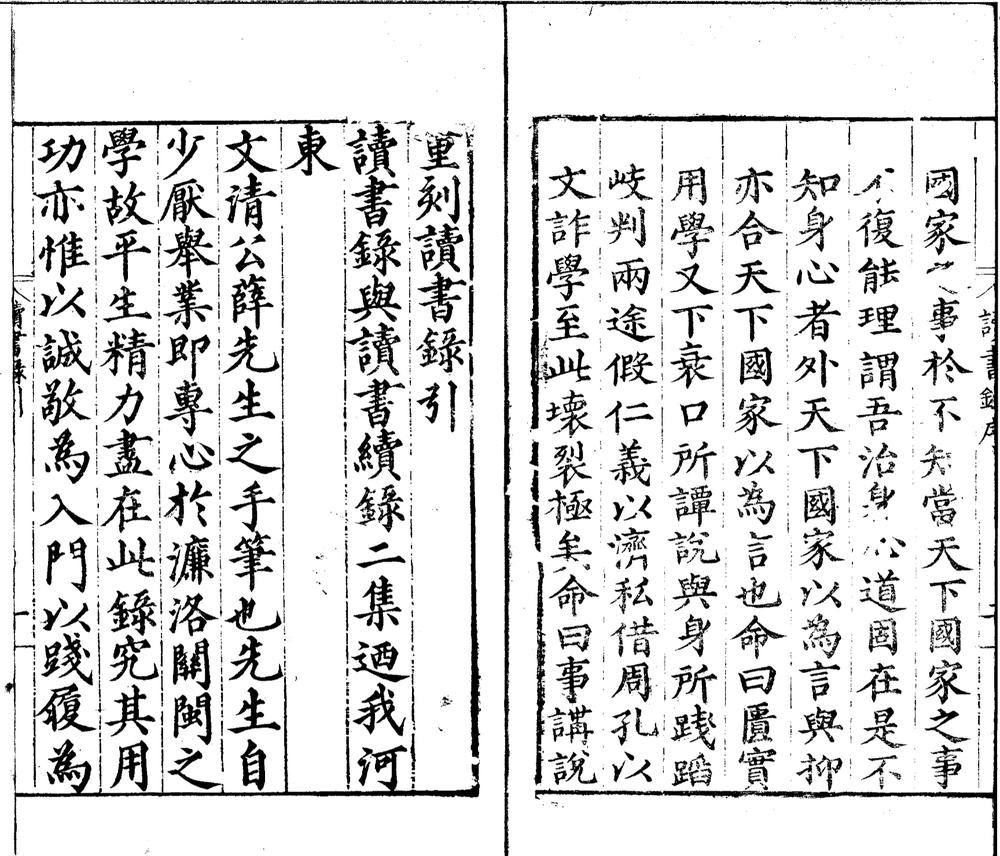 讀書錄序
國家之事於不知當天下國家之事
不復能理謂吾治身心道固在是不
知身心者外天下國家以為言與抑
亦合天下國家以為言也命曰匱實
用學又下衰口所譚說與身所踐蹈
岐判兩途假仁義以濟私借周孔以
文詐學至此壞裂極矣命曰事講說
重刻讀書錄引
讀書錄與讀書續錄二集迺我河
東
文清公薛先生之手筆也先生自
少厭舉業即專心於濂洛關閩之
學故平生精力盡在此錄究其用
功亦惟以誠敬為入門以踐履為
讀書錄引
一